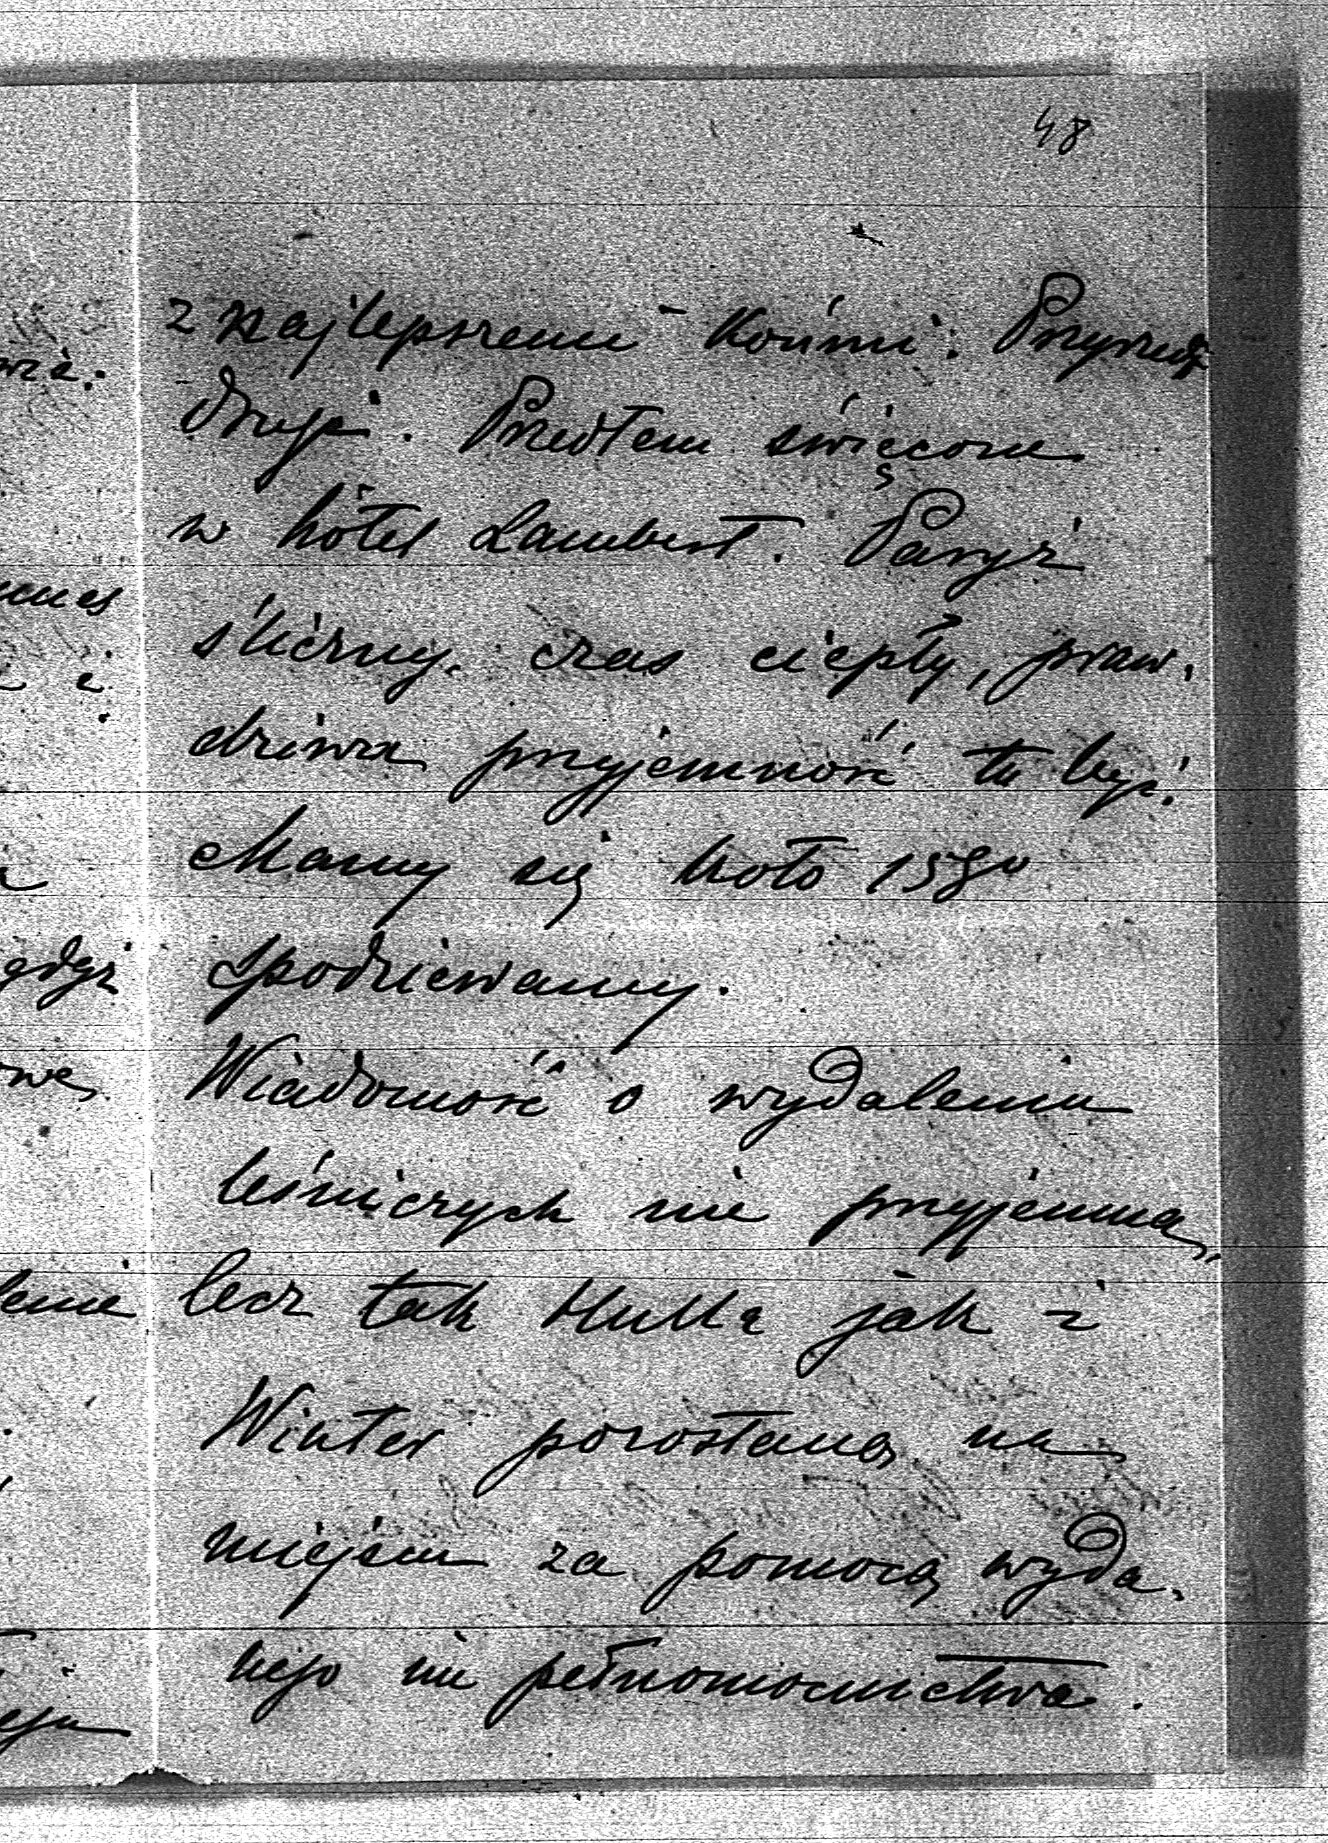 48
z najlepszemi końmi. Przyszedł
drugi. Przedtem święcone
w hôtel Lambert. Paryż
śliczny. czas ciepły, praw.
dziwa przyjemność tu być.
Mamy się koło 15go
spodziewamy.
Wiadomość o wydaleniu
leśniczych nie przyjemna,
lecz tak jak i
Winter pozostaną na
miejscu za pomocą wyda.
nego im pełnomocnictwa.